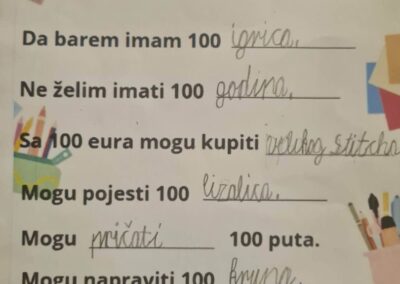 Da barem imam 100 igrica.
Ne želim imati 100 godina.
Sa 100 eura mogu kupiti velikog stitcha
Mogu pojesti 100 lizalica.
Mogu pričati 100 puta.
Mogu napraviti 100 kruna.